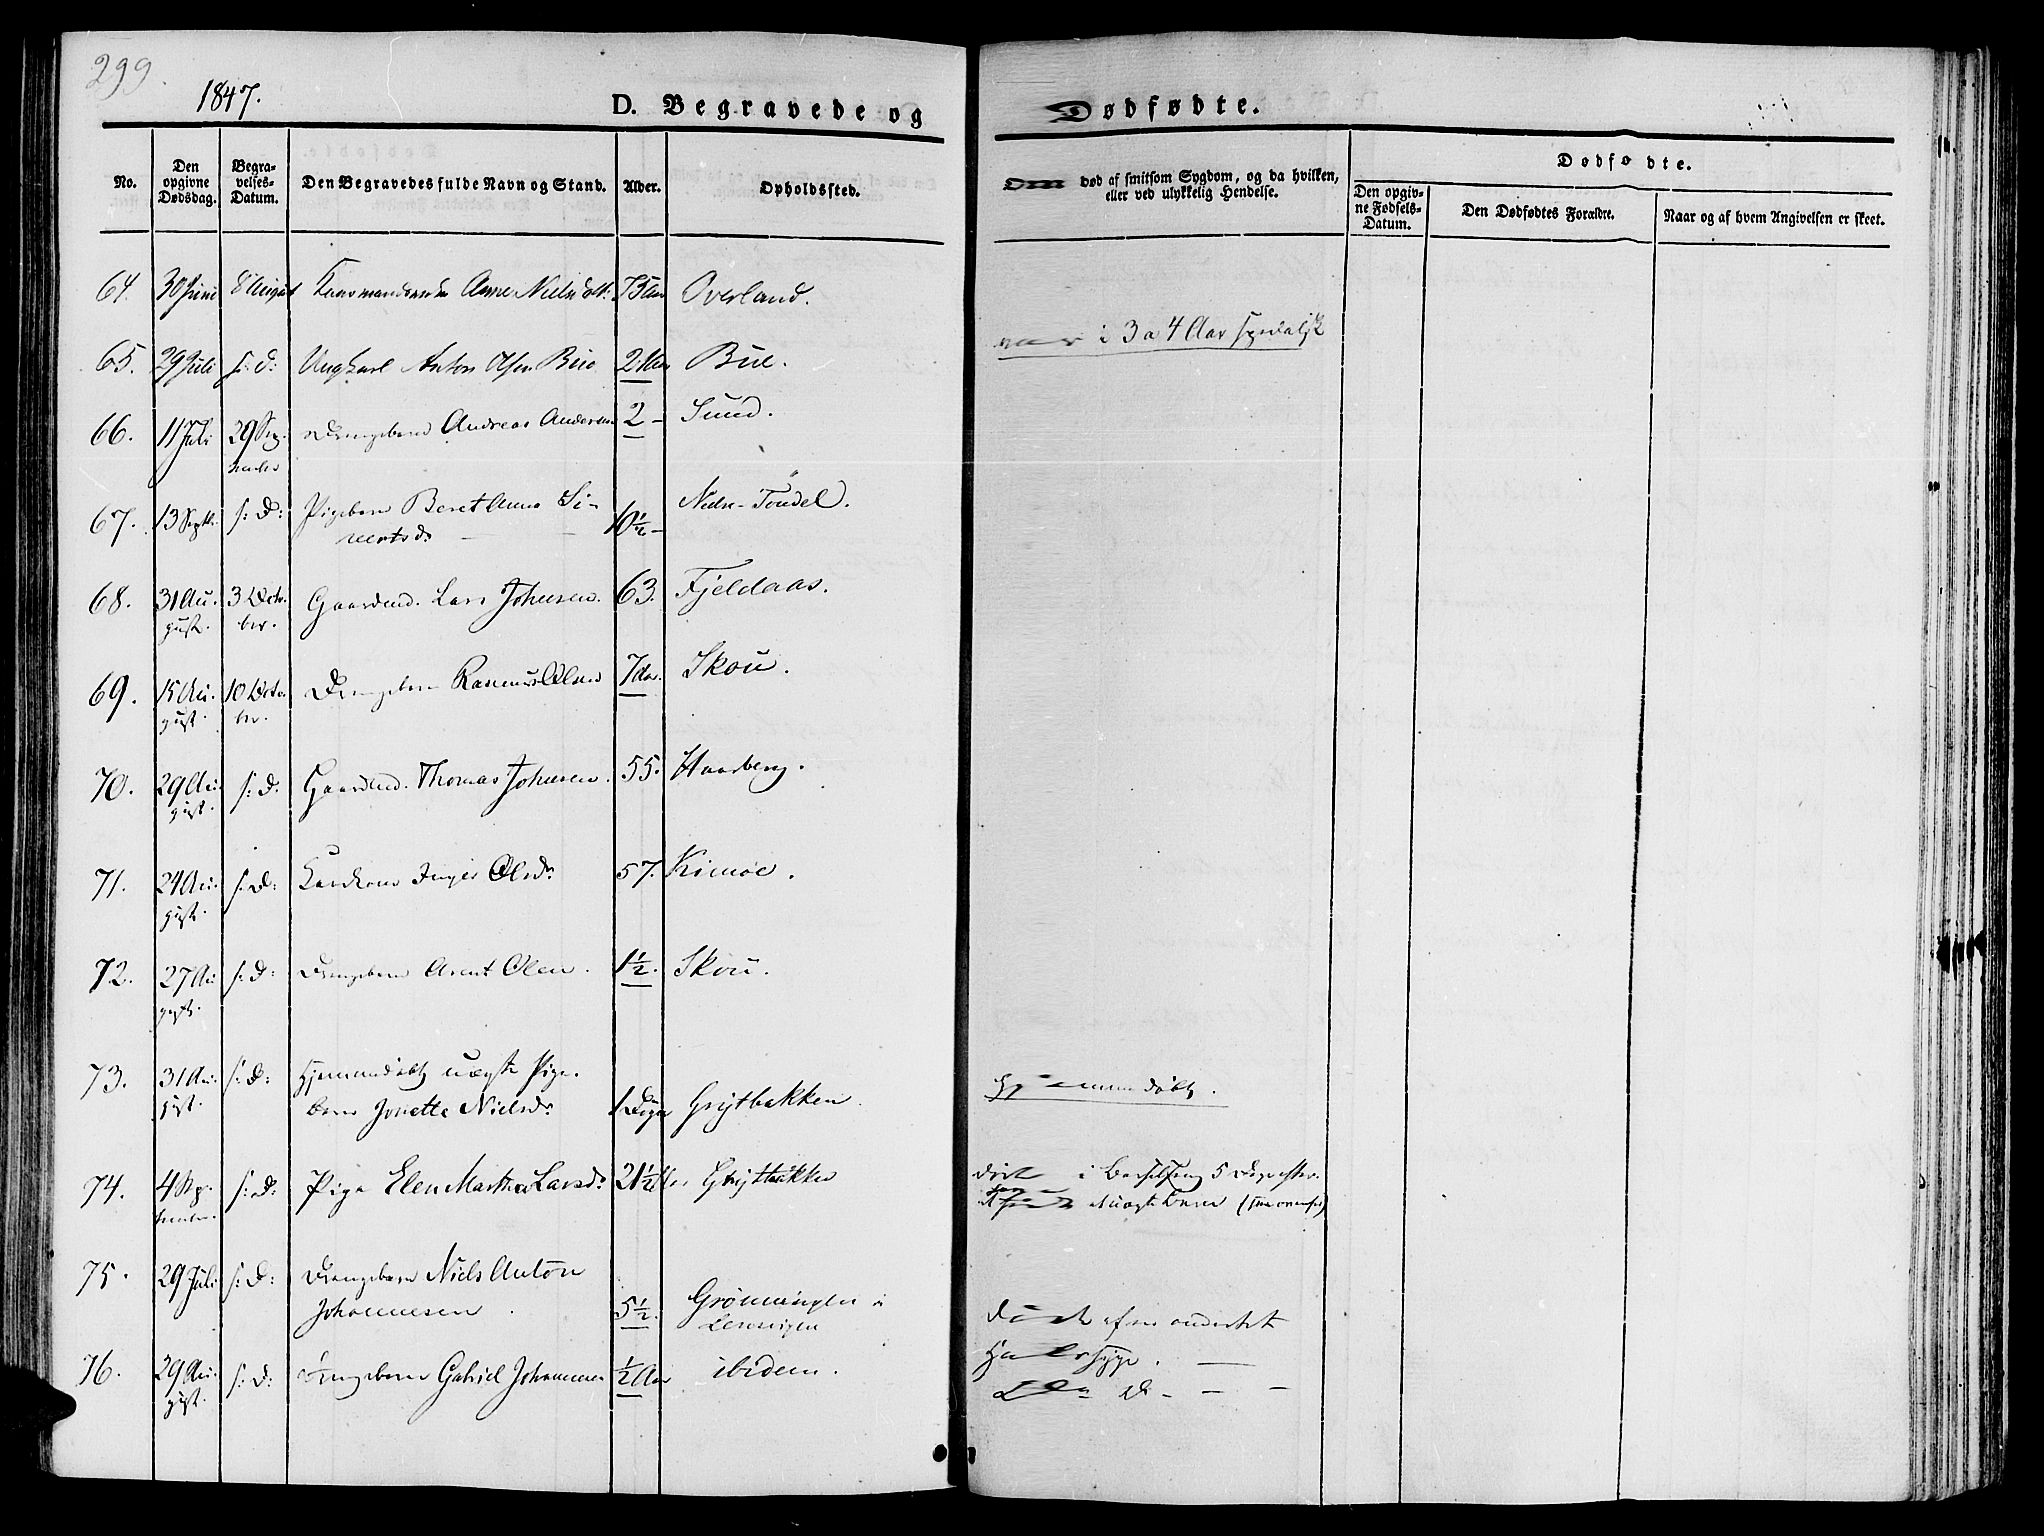 299.
1847.
D. Begravede og
Dødfødte.
No.
Den opgivne Dødsdag.
Begravelses-Datum.
Den Begravedes fulde Navn og Stand.
Alder.
Opholdssted.
død af smitsom Sygdom, og da hvilken,
eller ved ulykkelig Hendelse.
Dødfødte.
Den opgivne Fødsels-Datum.
Den Dødfødtes Forældre.
Naar og af hvem Angivelsen er skeet.
64. 30 Juni 8 August Anne Nielsdtt: 73 Aar Overland.
65. 29 Juli s: d: Ungkarl Anton Olsen Bue 21 Aar Bue.
i 3 a 4 Aar spedalsk
66. 11 Juli 29 Sep-
tember Drengebarn Andreas Andersen 2 – Sund.
67. 13 Septb. s: D: Pigebarn Beret Anna Si-
vertsd. 10½ – Nedre-Tøndel.
68. 31 Au-
gust. 3 Octo-
ber. Gaardmd. Lars Johnsen. 63. Fjeldaas.
69. 15 Au-
gust. 10 Octo-
ber. Drengebarn Rasmus Olsen 7 Skou.
70. 29 Au-
gust. s: D. Gaardmd. Thomas Johnsen. 55. Haarberg.
71. 24 Au-
gust. s: D: Inger Olsdr 57. Kimøe.
72. 27 Au-
gust. s: D: Drengebarn Arent Olsen. 1½. Skou.
73. 31 Au-
gust. s: D: Hjemmedøbt uægte Pige-
barn Jonetta Nielsdr 1 Døgn Grytbakken.
Hjemmedøbt.
74. 4 Sep-
tember s: D: Pige Elen Martha Larsdr. 21½ Grytbakken
i Barselseng 5 Dage efter
uægte Barn
75. 29 Juli s: D: Drengebarn Niels Anton
Johannesen. 5½. Grønningen i
Lensvigen
døde af ondartet
Halssyge. —
76. 29 Au-
gust. s: D: Drengebarn Gabriel Johannesen ½ Aar ibidem.
D – – –